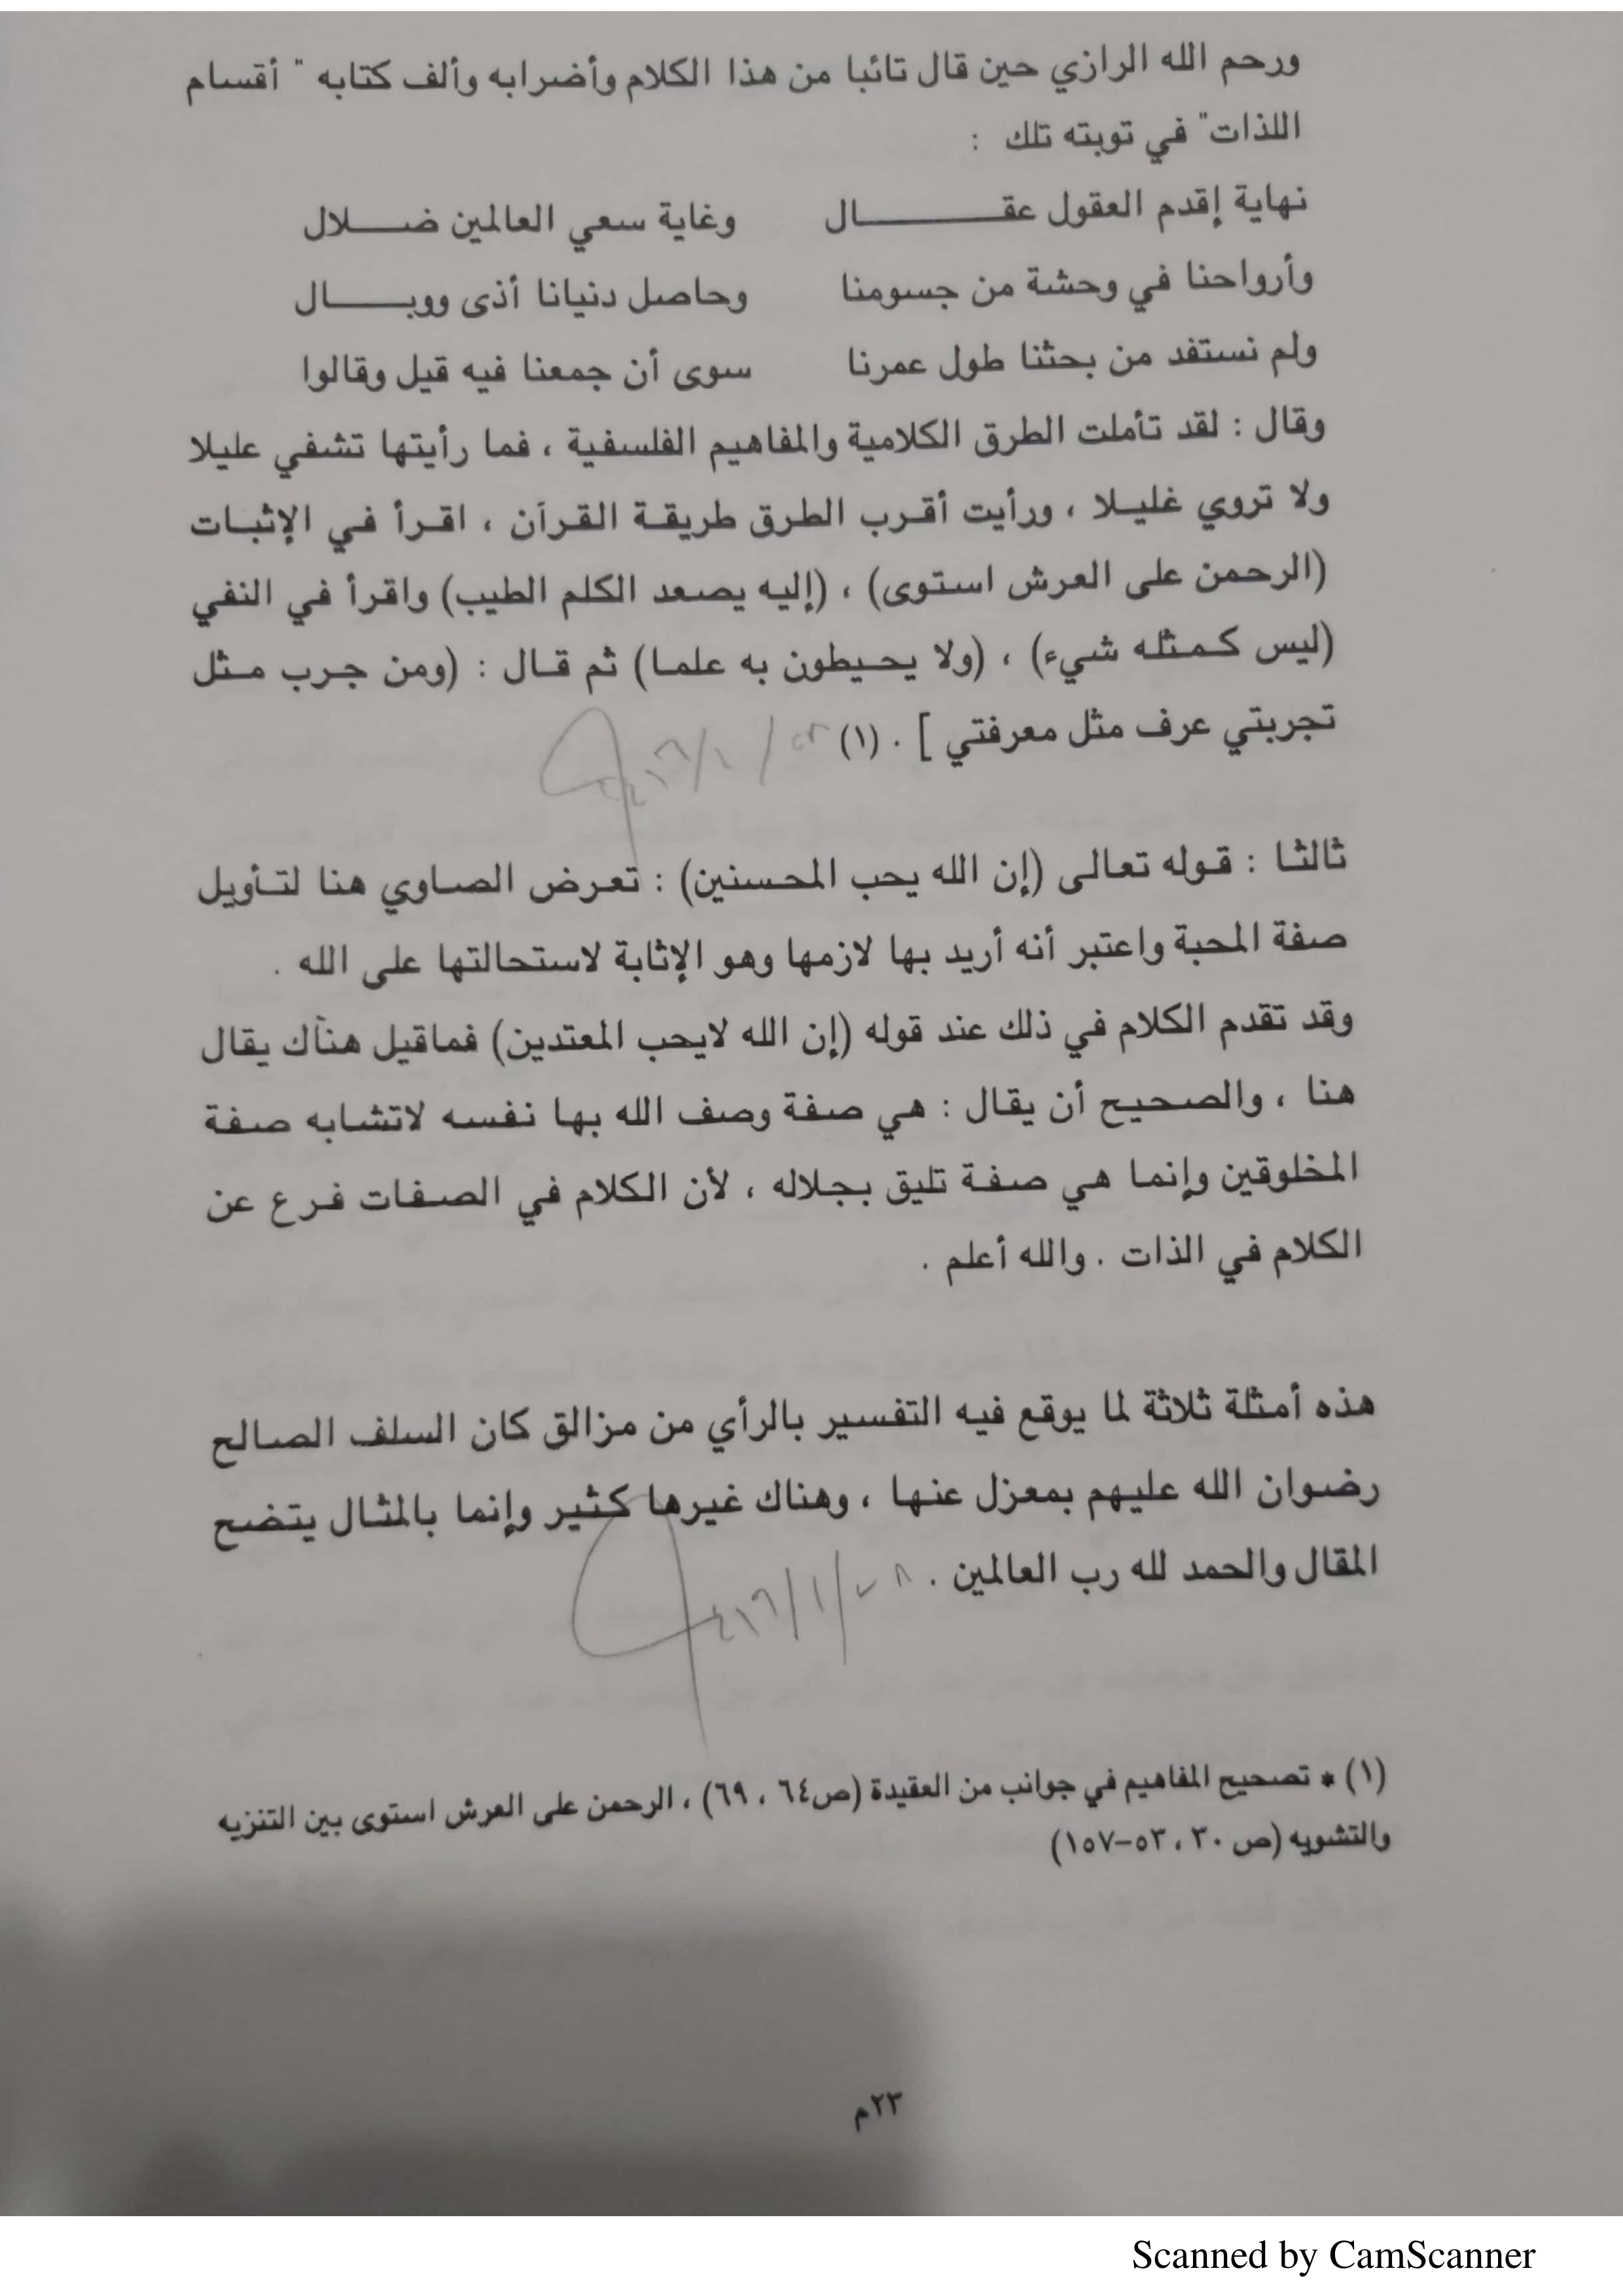 ورحم الله الرازي حين قال تائبا من هذا الكلام وأضرابه وألف كتابه " أقسام
اللذات" في توبته تلك :
نهاية إقدم العقول عقـــــــال وغاية سعي العالمين ضـــلال
وأرواحنا في وحشة من جسومنا وحاصل دنيانا أذى ووبــــال
ولم نستفد من بحثنا طول عمرنا سوى أن جمعنا فيه قيل وقالوا
وقال : لقد تأملت الطرق الكلامية والمفاهيم الفلسفية ، فما رأيتها تشفي عليلا
ولا تروي غليلا ، ورأيت أقرب الطرق طريقة القرآن ، اقرأ في الإثبات
(الرحمن على العرش استوى) ، (إليه يصعد الكلم الطيب) واقرأ في النفي
(ليس كمثله شيء) ، (ولا يحيطون به علما) ثم قال : (ومن جرب مثل
تجربتي عرف مثل معرفتي ] . (١)
ثالثا : قوله تعالى (إن الله يحب المحسنين) : تعرض الصاوي هنا لتأويل
صفة المحبة واعتبر أنه أريد بها لازمها وهو الإثابة لاستحالتها على الله .
وقد تقدم الكلام في ذلك عند قوله (إن الله لايحب المعتدين) فماقيل هناك يقال
هنا ، والصحيح أن يقال : هي صفة وصف الله بها نفسه لاتشابه صفة
المخلوقين وإنما هي صفة تليق بجلاله ، لأن الكلام في الصفات فرع عن
الكلام في الذات . والله أعلم .
هذه أمثلة ثلاثة لما يوقع فيه التفسير بالرأي من مزالق كان السلف الصالح
رضوان الله عليهم بمعزل عنها ، وهناك غيرها كثير وإنما بالمثال يتضح
المقال والحمد لله رب العالمين .
(١) * تصحيح المفاهيم في جوانب من العقيدة (ص٦٤ ، ٦٩) ، الرحمن على العرش استوى بين التنزيه
والتشويه (ص ٣٠ ، ٥٣-١٥٧)
٢٣م
Scanned by CamScanner